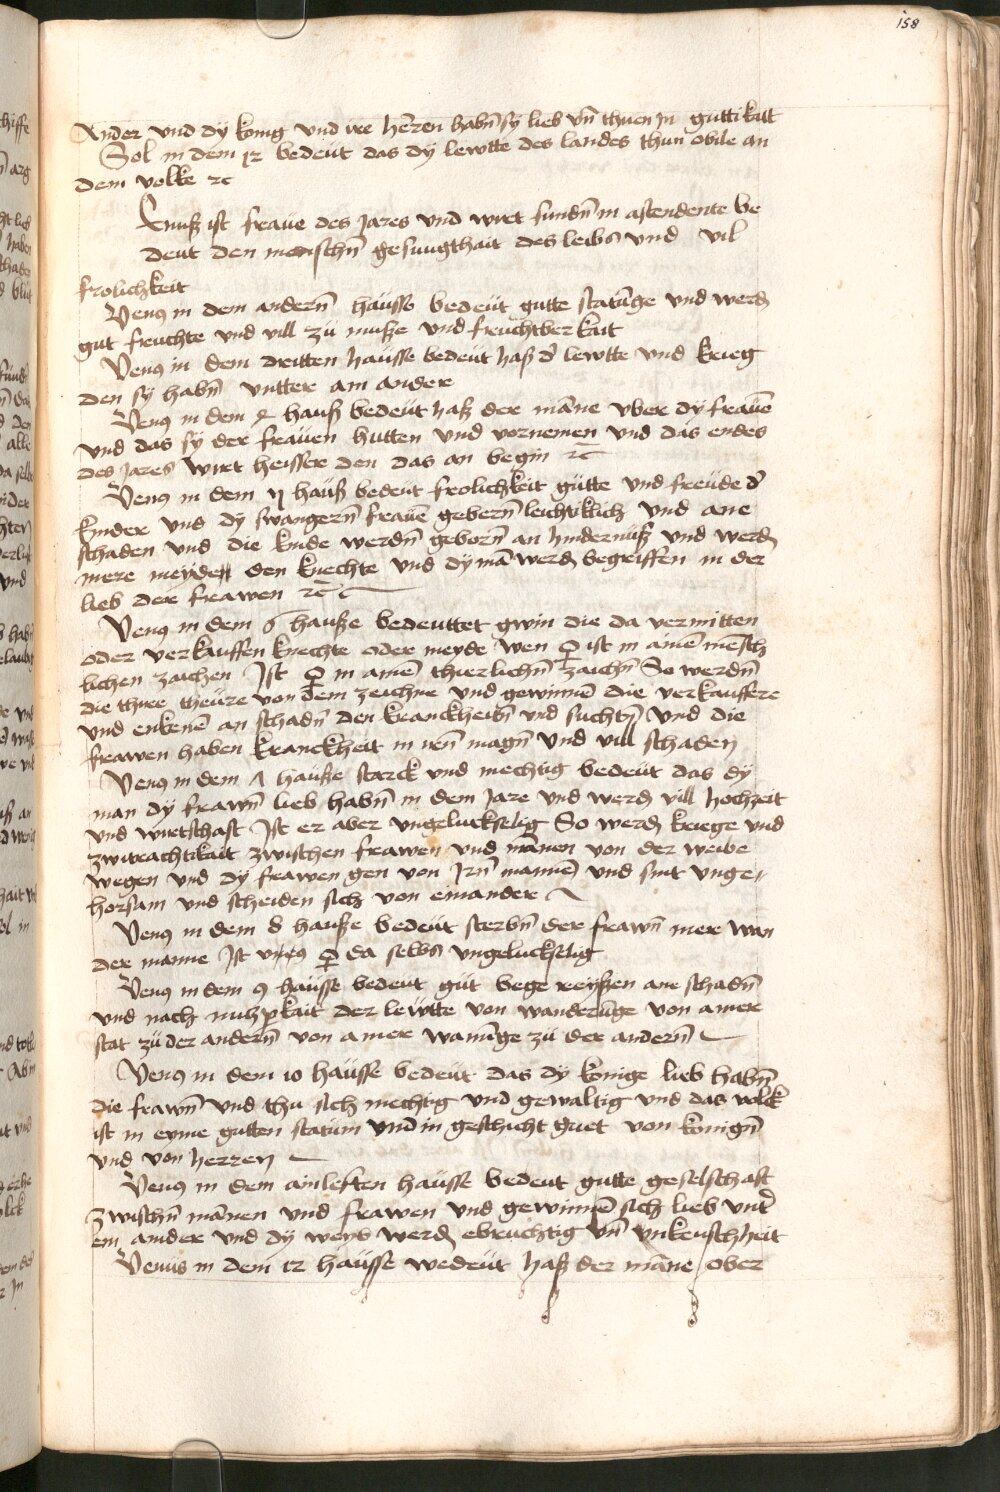 158
Ander vnd dy konig vnd ire herren habn̄ sy lieb vn̄ thuen in guttikait
Sol in dem 12 bedeüt das dy lewtte des landes thun vbile an
dem volke ⁊c
Enuß ist fraue des Jares vnd wirt fundn̄ in astendente be
deut den menschn̄ gesungthait des leibs vnd vil
frolichkeit
Venꝰ in dem andern̄ hausse bedeut gutte statūge vnd werdn̄
gut freuchte vnd vill zü nutze vnd freüchtberkait
Venꝰ in dem dritten hausse bedeüt haß d' lewtte vnd krieg
den sy habn̄ vnttere am ander
Venꝰ in dem 4 hauß bedeüt haß der māne vber dy frauē
vnd das sy der frauen hutten vnd vornemen vnd das endes
des Jares wirt heisser den das an begin ⁊c
Venꝰ in dem 5 hauß bedeut frolichkeit gütte vnd freüde d'
kinder vnd dy swangern̄ frauē gebern̄ leichtiklich vnd ane
schaden vnd die kinde werdn̄ geborn̄ an hindernuß vnd werdn̄
mere meyden den knechte vnd dy mā werdn̄ begriffen in der
lieb der frawen ⁊c
Venꝰ in dem 6 hauße bedeuttet gwin die da vermitten
oder verkauffen knechte oder meyde wen ♀ ist in aimē mensch
lichen zaichen Jst ♀ in amē thierlichn̄ zaichn̄ So werdn̄
die thire theüre von dem zeichne vnd gewinnē die verkauffere
vnd enkenē an schadn̄ den kranckheitn̄ vnd suchtn̄ vnd die
frawen haben kranckheit in iren̄ magn̄ vnd vill schaden
Venꝰ in dem 7 hauße starck vnd mechtig bedeüt das dy
man dy frawn̄ lieb habn̄ in dem Jare vnd werdn̄ vill hochzeit
vnd wirtschaft Jst er aber vngeluckselig So werdn̄ kriege vnd
zwitrachtikait zwischen frawen vnd mānen von der weibe
wegen vnd dy frawen gen von Jrn̄ mannē vnd sint vnge
horsam vnd scheiden sich von einander
Venꝰ in dem 8 hauße bedeüt sterbn̄ der frawn̄ mere wan
der manne Jst ♀ da selbs vngeluckselig
Venꝰ in dem 9 hausse bedeut güt wege reyßen ane schadn̄
vnd nach nutzpkait der lewtte von wanderūge von amer
stat zü der andern̄ von amer wanūge zü der andern̄
Venꝰ in dem 10 häusse bedeüt das dy konige lieb habn̄
die frawn̄ vnd thu sich mechtig vnd gewaltig vnd das volck
ist in eyme gutten statum vnd in geschicht guet von konign̄
vnd von herren
Venꝰ in dem ainleften hausse bedeut gutte geselschaft
zwischn̄ mānen vnd frawen vnd gewinnē sich lieb vnt'
ein ander vnd dy weyb werdn̄ ebruchtig vn̄ vnkeuschheit
Venus in dem 12 hausse wedeüt haß der māne ober